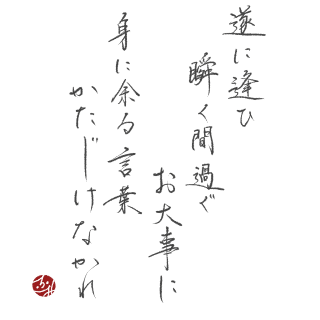 遂に逢ひ
瞬く間過ぐ
お大事に
身に余る言葉
かたじけなかれ